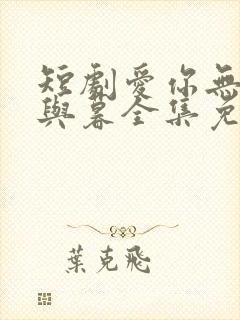 短劇愛你無
與暮全集免
葉克飛